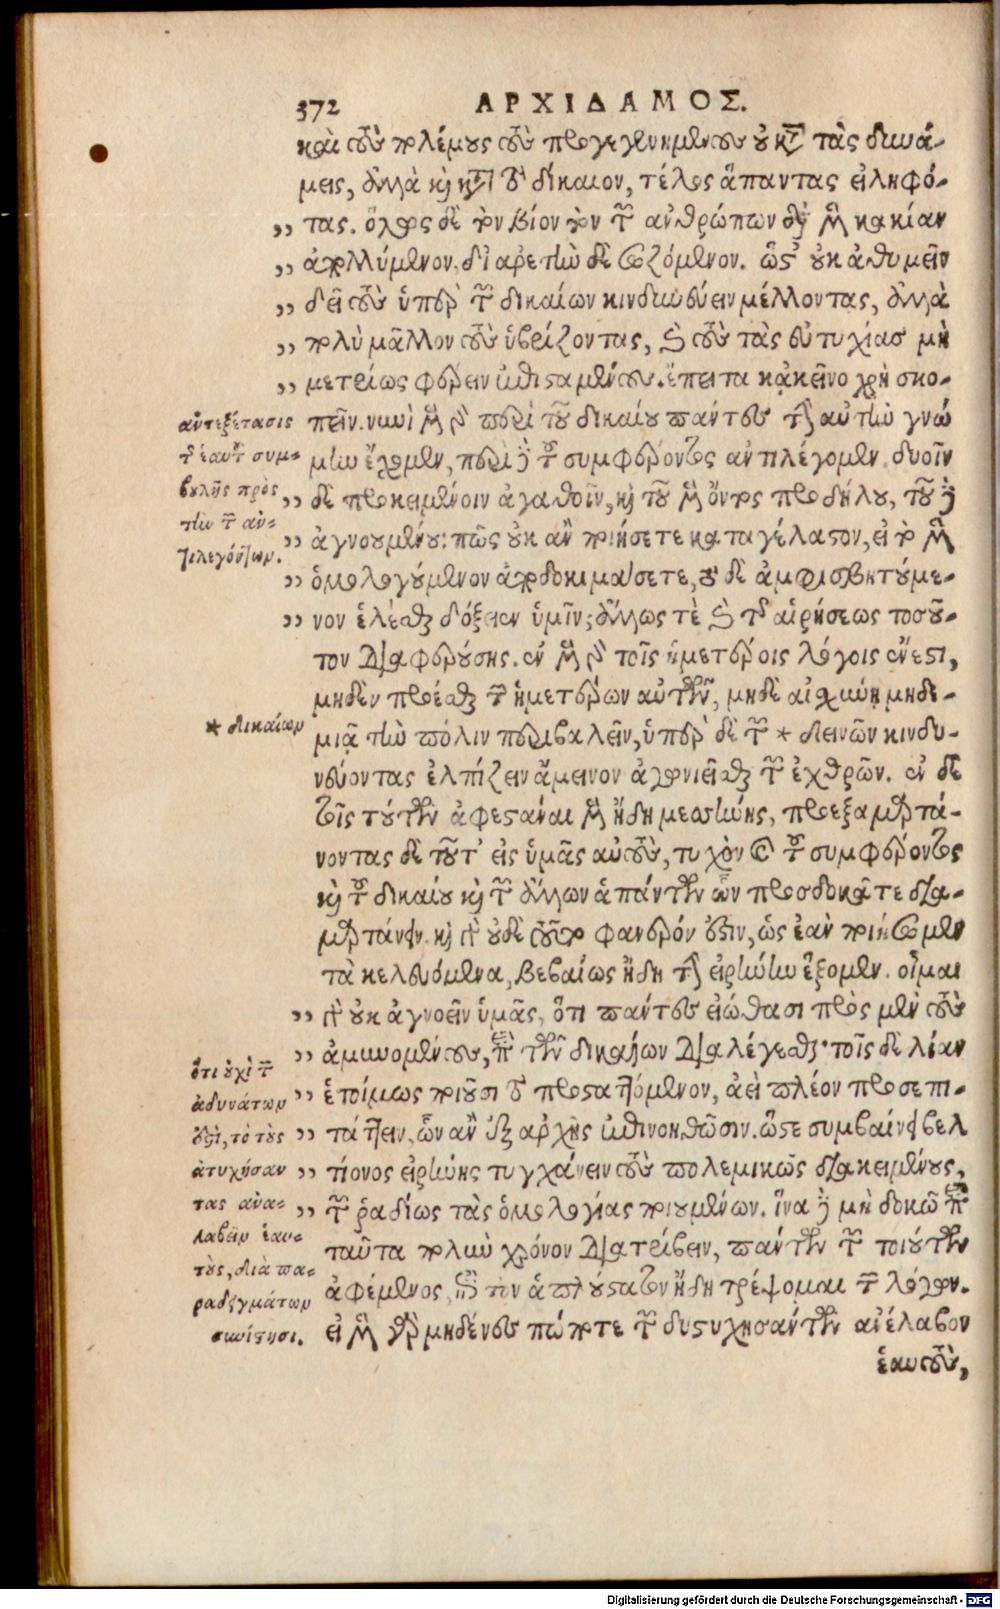 372 ΑΡΧΙΔΑΜΟΣ.
καὶ τοὺς πολέμους τοὺς προγεγενημένους οὐ κατὰ τὰς δυνά-
μεις, ἀλλὰ καὶ κατὰ τὸ δίκαιον, τέλος ἅπαντας εἰληφό-
,, τας. ὅλως δὲ τὸν βίον τὸν τῶν ἀνθρώπων διὰ μὲν κακίαν
,, ἀπολλύμενον, δι' ἀρετὴν δὲ σωζόμενον. ὥστ' οὐκ ἀθυμεῖν
,, δεῖ τοὺς ὑπὲρ τῶν δικαίων κινδυνεύειν μέλλοντας, ἀλλὰ
,, πολὺ μᾶλλον τοὺς ὑβρίζοντας, καὶ τοὺς τὰς εὐτυχίας μὴ
,, μετρίως φέρειν ἐπισταμένους. ἔπειτα κἀκεῖνο χρὴ σκο-
πεῖν. νυνὶ μὲν γὰρ περὶ τοῦ δικαίου πάντες τὴν αὐτὴν γνώ
μην ἔχομεν, περὶ δὲ τοῦ συμφέροντος ἀντιλέγομεν. δυοῖν
,, δὲ προκειμένοιν ἀγαθοῖν, καὶ τοῦ μὲν ὄντος προδήλου, τοῦ δὲ
,, ἀγνοουμένου: πῶς οὐκ ἂν ποιήσετε καταγέλαστον, εἰ τὸ μὲν
,, ὁμολογούμενον ἀποδοκιμάσετε, τὸ δὲ ἀμφισβητούμε-
,, νον ἑλέσθαι δόξειεν ὑμῖν; ἄλλως τὲ καὶ τῆς αἱρήσεως τοσοῦ-
τον διαφερούσης. ἐν μὲν γὰρ τοῖς ἡμετέροις λόγοις ἔνεστι,
μηδὲν προέσθαι τῶν ἡμετέρων αὐτῶν, μηδὲ αἰσχύνῃ μηδε-
μιᾷ τὴν πόλιν περιβαλεῖν, ὑπὲρ δὲ τῶν * δεινῶν κινδυ-
νεύοντας ἐλπίζειν ἄμεινον ἀγωνιεῖσθαι τῶν ἐχθρῶν. ἐν δὲ
τοῖς τούτων ἀφεστάναι μὲν ἤδη μεσσήνης, προεξαμαρτά-
νοντας δὲ τοῦτ' εἰς ὑμᾶς αὐτοὺς, τυχὸν καὶ τοῦ συμφέροντος
καὶ τοῦ δικαίου καὶ τῶν ἄλλων ἁπάντων ὧν προσδοκᾶτε δια-
μαρτάνειν. καὶ γὰρ οὐδὲ τοῦτό πω φανερόν ἐστιν, ὡς ἐὰν ποιήσωμεν
τὰ κελευόμενα, βεβαίως ἤδη τὴν εἰρήνην ἕξομεν. οἶμαι
,, γὰρ οὐκ ἀγνοεῖν ὑμᾶς, ὅτι πάντες εἰώθασι πρὸς μὲν τοὺς
,, ἀμυνομένους, περὶ τῶν δικαίων διαλέγεσθαι· τοῖς δὲ λίαν
,, ἑτοίμως ποιοῦσι τὸ προσταττόμενον, ἀεὶ πλέον προσεπι-
,, τάττειν, ὧν ἂν ἐξ ἀρχῆς ἐπινοηθῶσιν. ὥστε συμβαίνει βελ
,, τίονος εἰρήνης τυγχάνειν τοὺς πολεμικῶς διακειμένους,
,, τῶν ῥαδίως τὰς ὁμολογίας ποιουμένων. ἵνα δὲ μὴ δοκῶ περὶ
ταῦτα πολὺν χρόνον διατρίβειν, πάντων τῶν τοιούτων
ἀφέμενος, ἐπὶ τὸν ἁπλούστατον ἤδη τρέψομαι τῶν λόγων.
εἰ μὲν γὰρ μηδένες πώποτε τῶν δυστυχησάντων ἀνέλαβον
ἑαυτοὺς,
ἀντεξέτασις
τῆς ἑαυτοῦ συμ-
βουλῆς πρὸς
τὴν τῶν ἀν-
τιλεγόντων.
* δικαίων
ὅτι οὐχὶ τῶν
ἀδυνάτων
ἐστὶ, τὸ τοὺς
ἀτυχήσαν
τας ἀνα-
λαβεῖν ἑαυ-
τοὺς, διὰ πα-
ραδειγμάτων
συνίστησι.
Digitalisierung gefördert durch die Deutsche Forschungsgemeinschaft - DFG